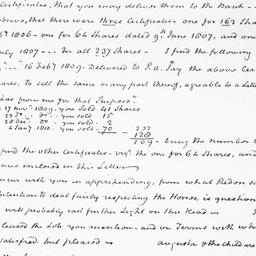 Certificates, that you may deliver them to the Bank
above, that there were three Certificates - one for 163 Sha
1806 - one for 64 Shares dated 9th June 1807, and one
July 1807 - - - In all 237 Shares - I find the following
16 Feby 1809. Delivered to P.A. Jay the above Cert
ares, to sell the same or any part thereof, agreeable to a Lette
has from me for that Purpose"
17 Novr 1809. you sold 41 Shares
you sold 15
you sold 2
4 Jany 1810. you sold 70 — 237
128
109 - being the number
find the other Certificates - viz. the one for 64 Shares, and
are inclosed in this Letter
ncur with you in apprehending, from what Redon
Intention to deal fairly respecting the Horses, is question
will probably cast further Light on this Head
leased the Lots you mention - and on Terms with wh
satisfied. but pleased Augusta & the children